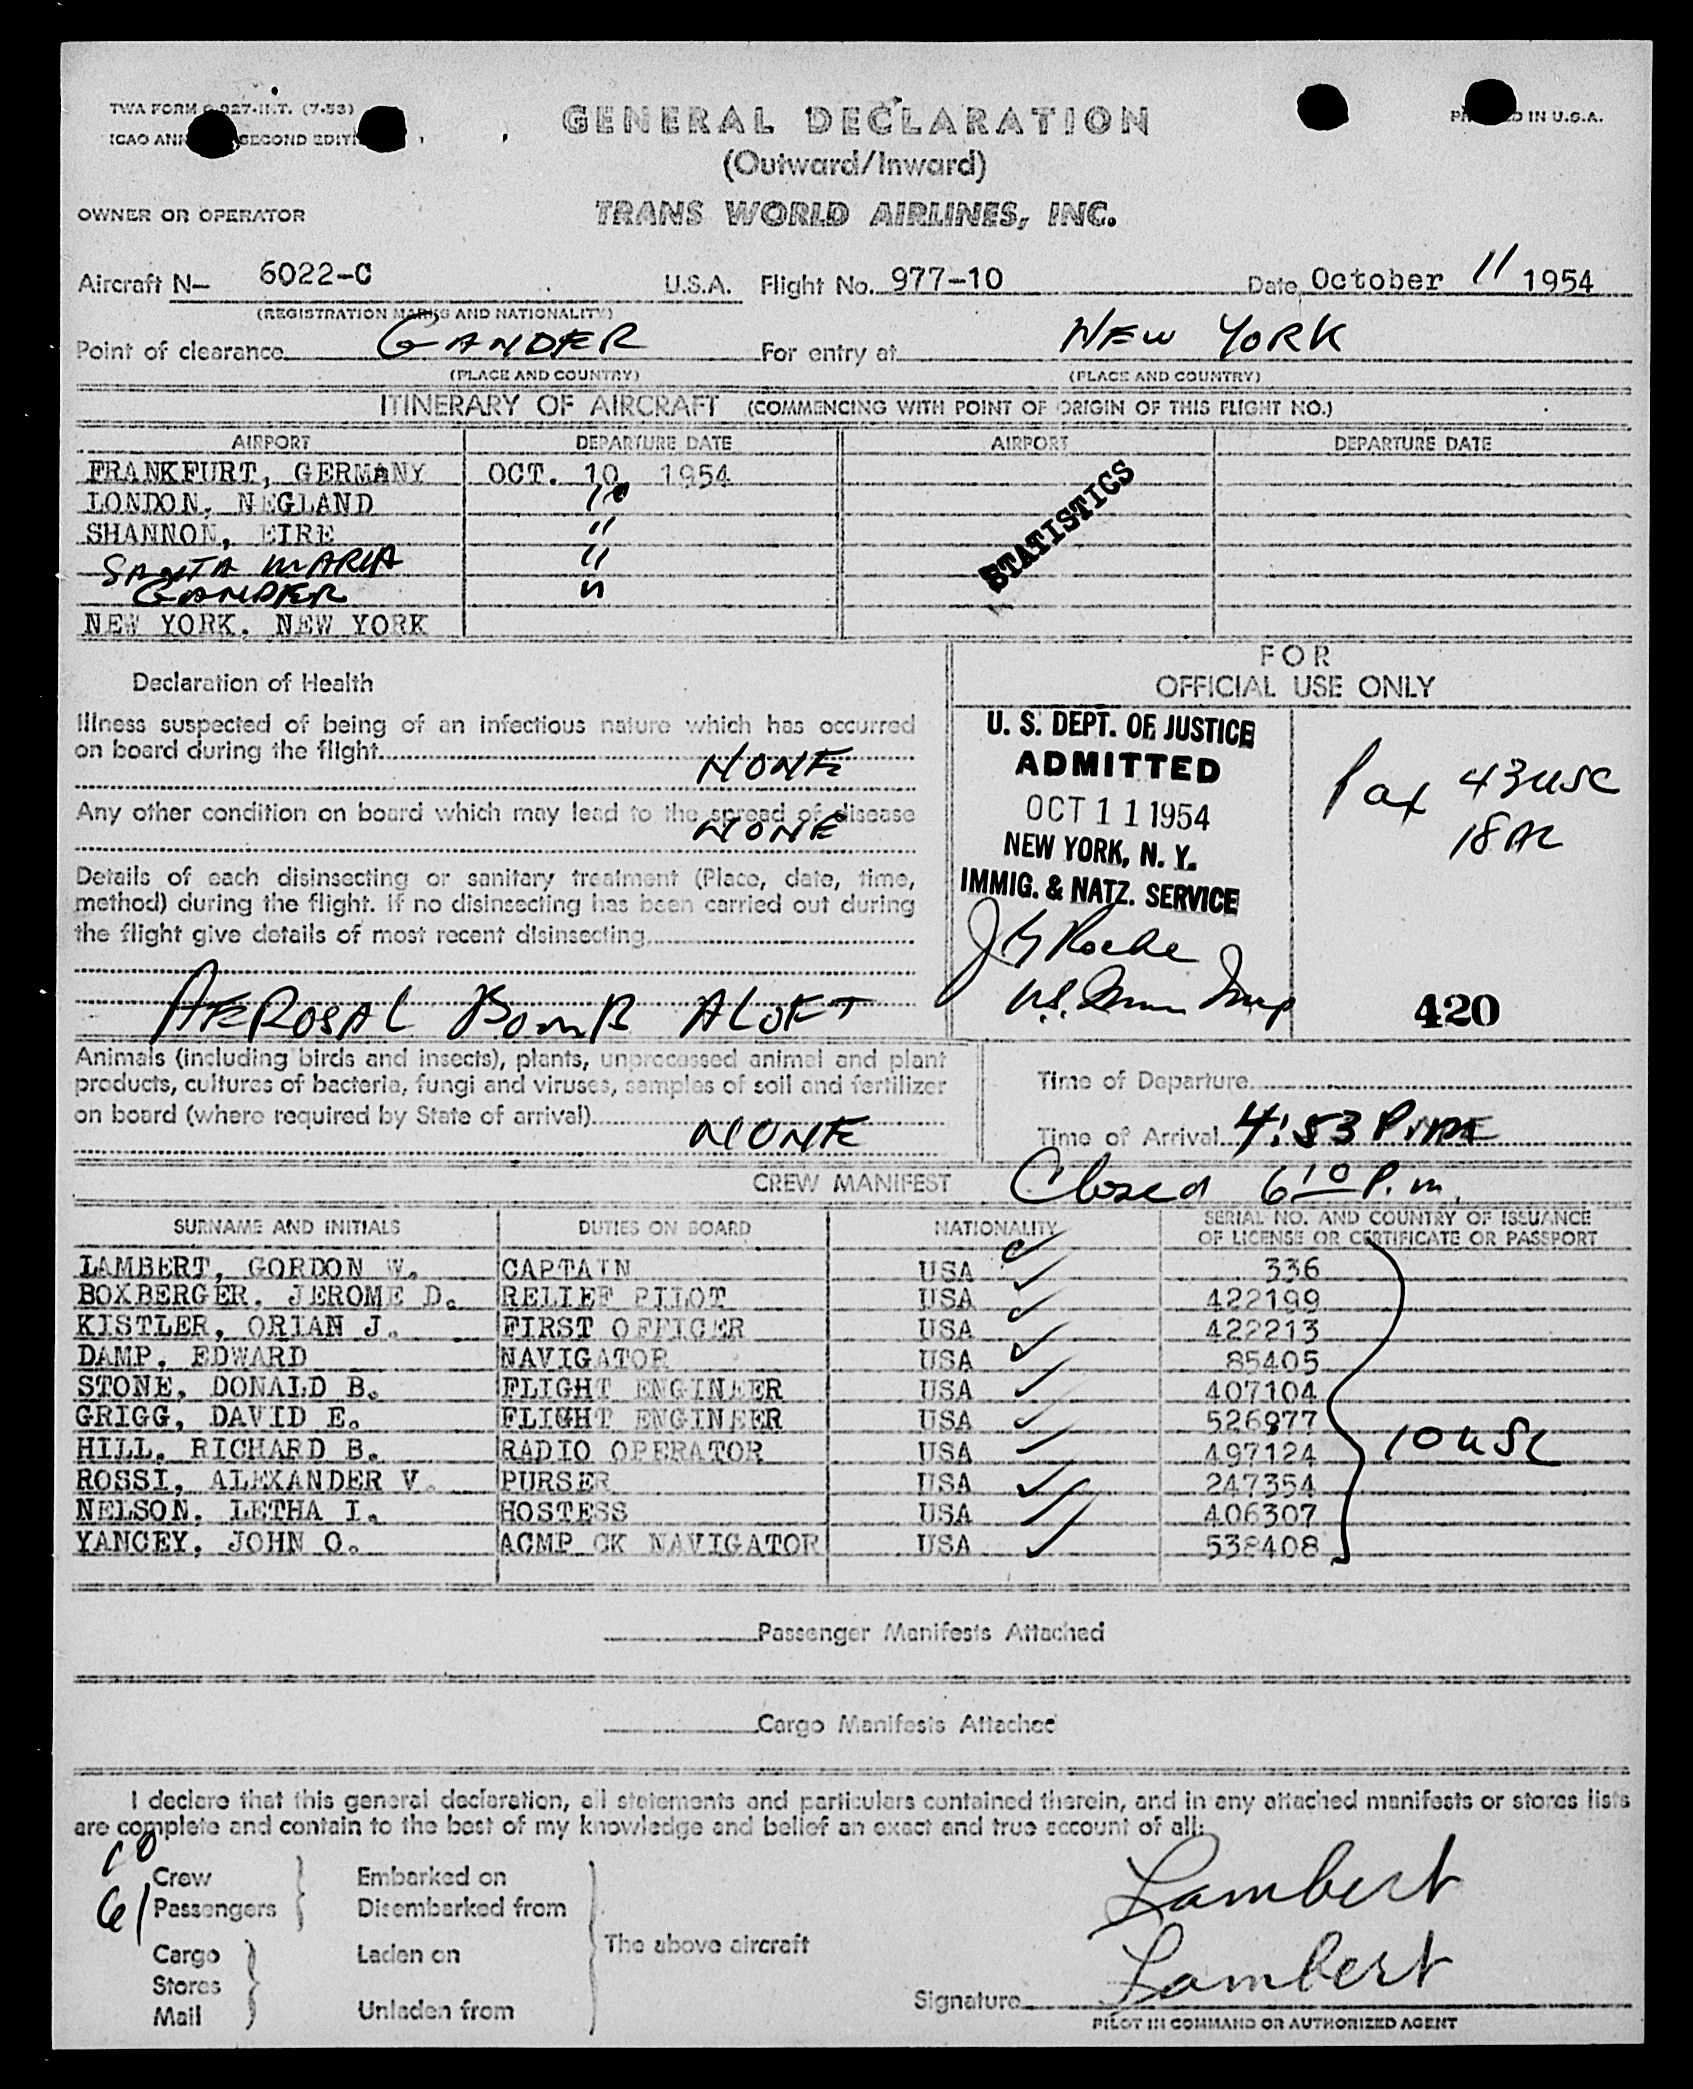 TWA FORM (7-53)
PRINTED IN U.S.A.
SECOND
GENERAL DECLARATION
(Outward/Inward)
OWNER OR OPERATOR
TRANS WORLD AIRLINES, INC.
Aircraft N— 6022-C U.S.A. Flight No. 977-10 Date October 11 1954
(REGISTRATION MARKS AND NATIONALITY)
Point of clearance GANDER For entry at NEW YORK
(PLACE AND COUNTRY) (PLACE AND COUNTRY)
ITINERARY OF AIRCRAFT (COMMENCING WITH POINT OF ORIGIN OF THIS FLIGHT NO.)
AIRPORT DEPARTURE DATE AIRPORT DEPARTURE DATE
FRANKFURT, GERMANY OCT. 10 1954
LONDON, NEGLAND 10
SHANNON, EIRE "
SANTA MARIA "
GANDER "
NEW YORK, NEW YORK
STATISTICS
Declaration of Health
Illness suspected of being of an infectious nature which has occurred
on board during the flight
NONE
Any other condition on board which may lead to the spread of disease
NONE
Details of each disinsecting or sanitary treatment (Place, date, time,
method) during the flight. If no disinsecting has been carried out during
the flight give details of most recent disinsecting
AEROSAL BOMB ALOFT
FOR
OFFICIAL USE ONLY
U. S. DEPT. OF JUSTICE
ADMITTED
OCT 11 1954
NEW YORK, N. Y.
IMMIG. & NATZ. SERVICE
Roche
Pax 43 USC
18 AL
420
Animals (including birds and insects), plants, unprocessed animal and plant
products, cultures of bacteria, fungi and viruses, samples of soil and fertilizer
on board (where required by State of arrival)
NONE
Time of Departure
Time of Arrival 4:53 P.M.
CREW MANIFEST Closed 6 10 P.m.
SURNAME AND INITIALS DUTIES ON BOARD NATIONALITY SERIAL NO. AND COUNTRY OF ISSUANCE
OF LICENSE OR CERTIFICATE OR PASSPORT
LAMBERT, GORDON W. CAPTAIN USA 336
BOXBERGER, JEROME D. RELIEF PILOT USA 422199
KISTLER, ORIAN J. FIRST OFFICER USA 422213
DAMP, EDWARD NAVIGATOR USA 85405
STONE, DONALD B. FLIGHT ENGINEER USA 407104
GRIGG, DAVID E. FLIGHT ENGINEER USA 526977
HILL, RICHARD B. RADIO OPERATOR USA 497124
ROSSI, ALEXANDER V. PURSER USA 247354
NELSON, LETHA I. HOSTESS USA 406307
YANCEY, JOHN O. ACMP CK NAVIGATOR USA 538408
10 USC
Passenger Manifests Attached
Cargo Manifests Attached
I declare that this general declaration, all statements and particulars contained therein, and in any attached manifests or stores lists
are complete and contain to the best of my knowledge and belief an exact and true account of all:
10 Crew
61 Passengers
Embarked on
Disembarked from
Cargo
Stores
Mail
Laden on
Unladen from
The above aircraft
Lambert
Signature Lambert
PILOT IN COMMAND OR AUTHORIZED AGENT